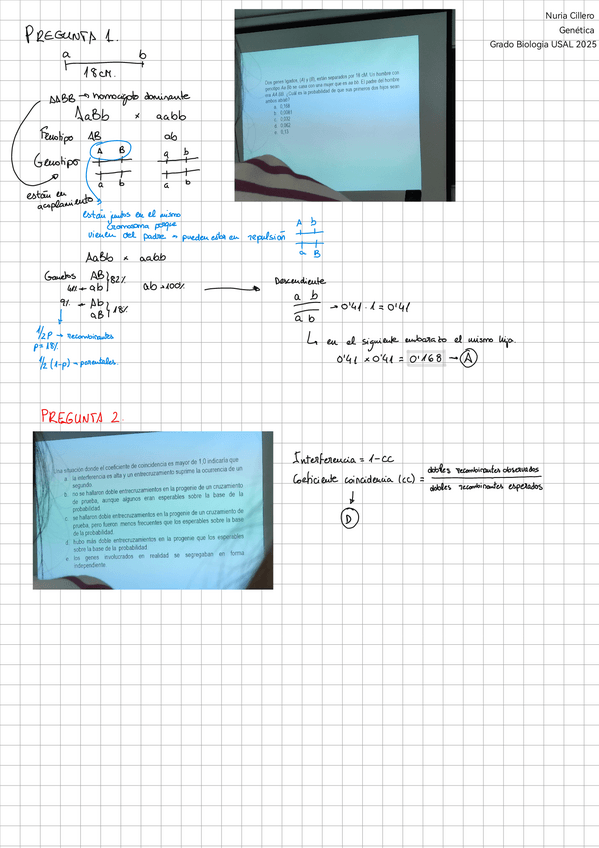 Nuria Cillero
Genética
Grado Biologia USAL 2025
PREGUNTA 1.
a b
18cM.
AABB → homocigoto dominante
AaBb × aabb
Fenotipo AB ab
Genotipo A B a b
a b a b
están en acoplamiento
están juntos en el mismo
cromosoma porque
vienen del padre → pueden estar en repulsión
A b
a B
Dos genes ligados, (A) y (B), están separados por 18 cM. Un hombre con
genotipo Aa Bb se casa con una mujer que es aa bb. El padre del hombre
era AA BB. ¿Cuál es la probabilidad de que sus primeros dos hijos sean
ambos ab/ab?
a. 0,168
b. 0,0081
c. 0,032
d. 0,062
e. 0,13
AaBb × aabb
Gametos AB } 82%
41% ← ab
9% ← Ab } 18%
aB
ab → 100%
1/2 p → recombinantes
p = 18%
1/2 (1-p) → parentales.
Descendiente
a b
a b
→ 0'41 · 1 = 0'41
↳ en el siguiente embarazo el mismo hijo.
0'41 × 0'41 = 0'168 → A
PREGUNTA 2.
Una situación donde el coeficiente de coincidencia es mayor de 1.0 indicaría que
a. la interferencia es alta y un entrecruzamiento suprime la ocurrencia de un
segundo.
b. no se hallaron doble entrecruzamientos en la progenie de un cruzamiento
de prueba, aunque algunos eran esperables sobre la base de la
probabilidad.
c. se hallaron doble entrecruzamientos en la progenie de un cruzamiento de
prueba, pero fueron menos frecuentes que los esperables sobre la base
de la probabilidad.
d. hubo más doble entrecruzamientos en la progenie que los esperables
sobre la base de la probabilidad.
e. los genes involucrados en realidad se segregaban en forma
independiente.
Interferencia = 1-CC
Coeficiente coincidencia (CC) = dobles recombinantes observados
dobles recombinantes esperados
D